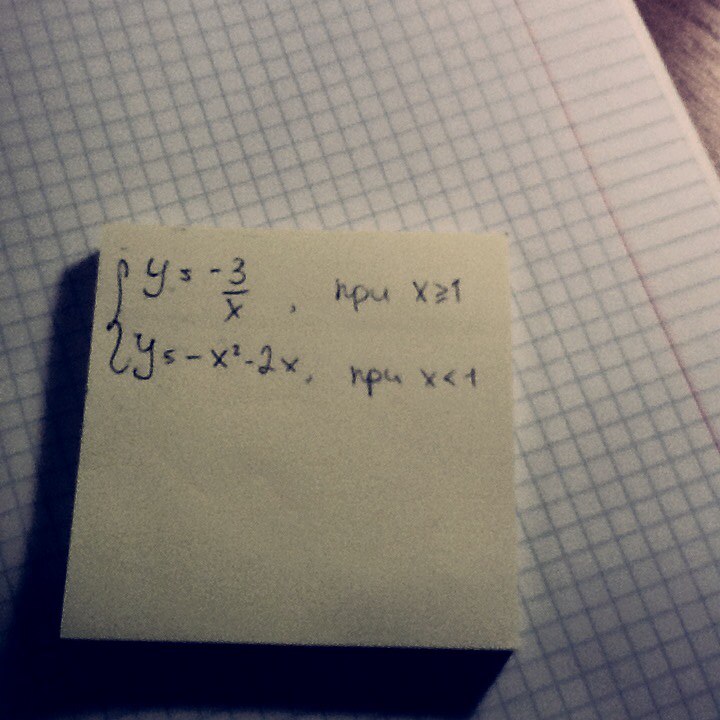 { y = -3/x , при x ≥ 1
y = -x² - 2x, при x < 1